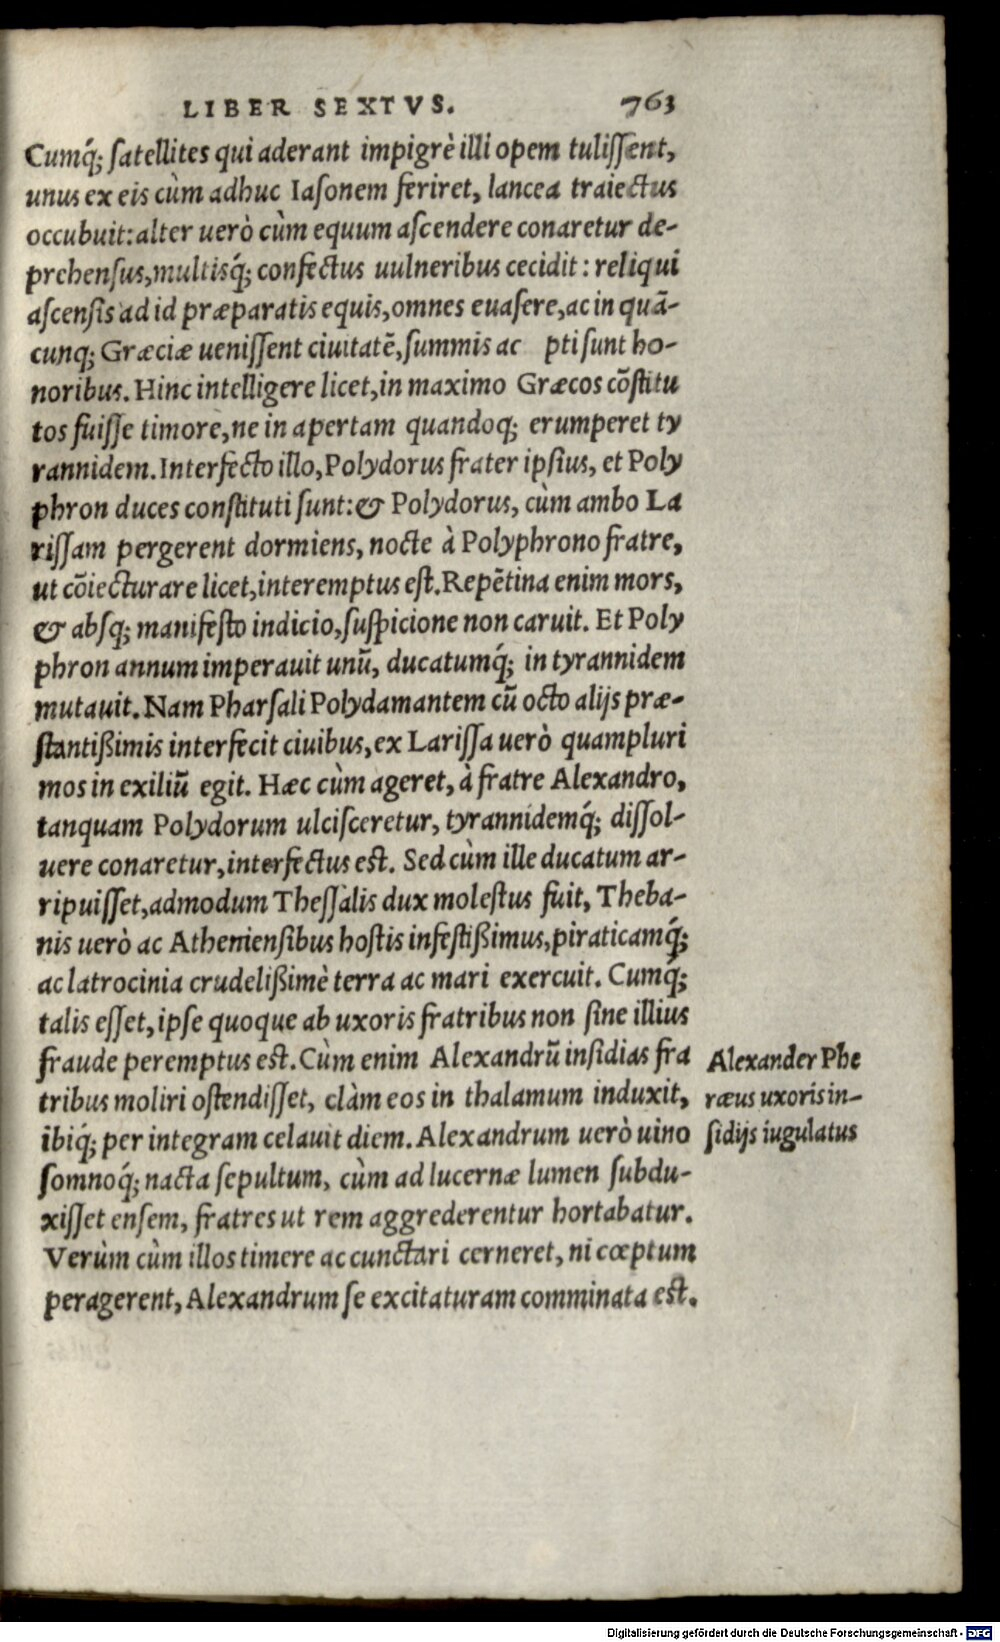 LIBER SEXTVS. 763
Cumq́; ſatellites qui aderant impigrè illi opem tuliſſent,
unus ex eis cùm adhuc Iaſonem feriret, lancea traiectus
occubuit: alter uerò cùm equum aſcendere conaretur de-
prehenſus, multisq́; confectus uulneribus cecidit: reliqui
aſcenſis ad id præparatis equis, omnes euaſere, ac in quā-
cunq; Græciæ ueniſſent ciuitatē, ſummis ac pti ſunt ho-
noribus. Hinc intelligere licet, in maximo Græcos cōſtitu
tos fuiſſe timore, ne in apertam quandoq; erumperet ty
rannidem. Interfecto illo, Polydorus frater ipſius, et Poly
phron duces conſtituti ſunt: & Polydorus, cùm ambo La
riſſam pergerent dormiens, nocte à Polyphrono fratre,
ut cōiecturare licet, interemptus eſt. Repētina enim mors,
& absq; manifeſto indicio, ſuſpicione non caruit. Et Poly
phron annum imperauit unū, ducatumq́; in tyrannidem
mutauit. Nam Pharſali Polydamantem cū octo alijs præ-
ſtantißimis interfecit ciuibus, ex Lariſſa uerò quampluri
mos in exiliū egit. Hæc cùm ageret, à fratre Alexandro,
tanquam Polydorum ulciſceretur, tyrannidemq́; diſſol-
uere conaretur, interfectus est. Sed cùm ille ducatum ar-
ripuiſſet, admodum Theſſalis dux moleſtus fuit, Theba-
nis uerò ac Athenienſibus hoſtis infeſtißimus, piraticamq́;
ac latrocinia crudelißimè terra ac mari exercuit. Cumq́;
talis eſſet, ipſe quoque ab uxoris fratribus non ſine illius
fraude peremptus est. Cùm enim Alexandrū inſidias fra
tribus moliri oſtendiſſet, clàm eos in thalamum induxit,
ibiq́; per integram celauit diem. Alexandrum uerò uino
ſomnoq́; nacta ſepultum, cùm ad lucernæ lumen ſubdu-
xiſſet enſem, fratres ut rem aggrederentur hortabatur.
Verùm cùm illos timere ac cunctari cerneret, ni cœptum
peragerent, Alexandrum ſe excitaturam comminata est.
Alexander Phe
ræus uxoris in-
ſidijs iugulatus
Digitalisierung gefördert durch die Deutsche Forschungsgemeinschaft - DFG